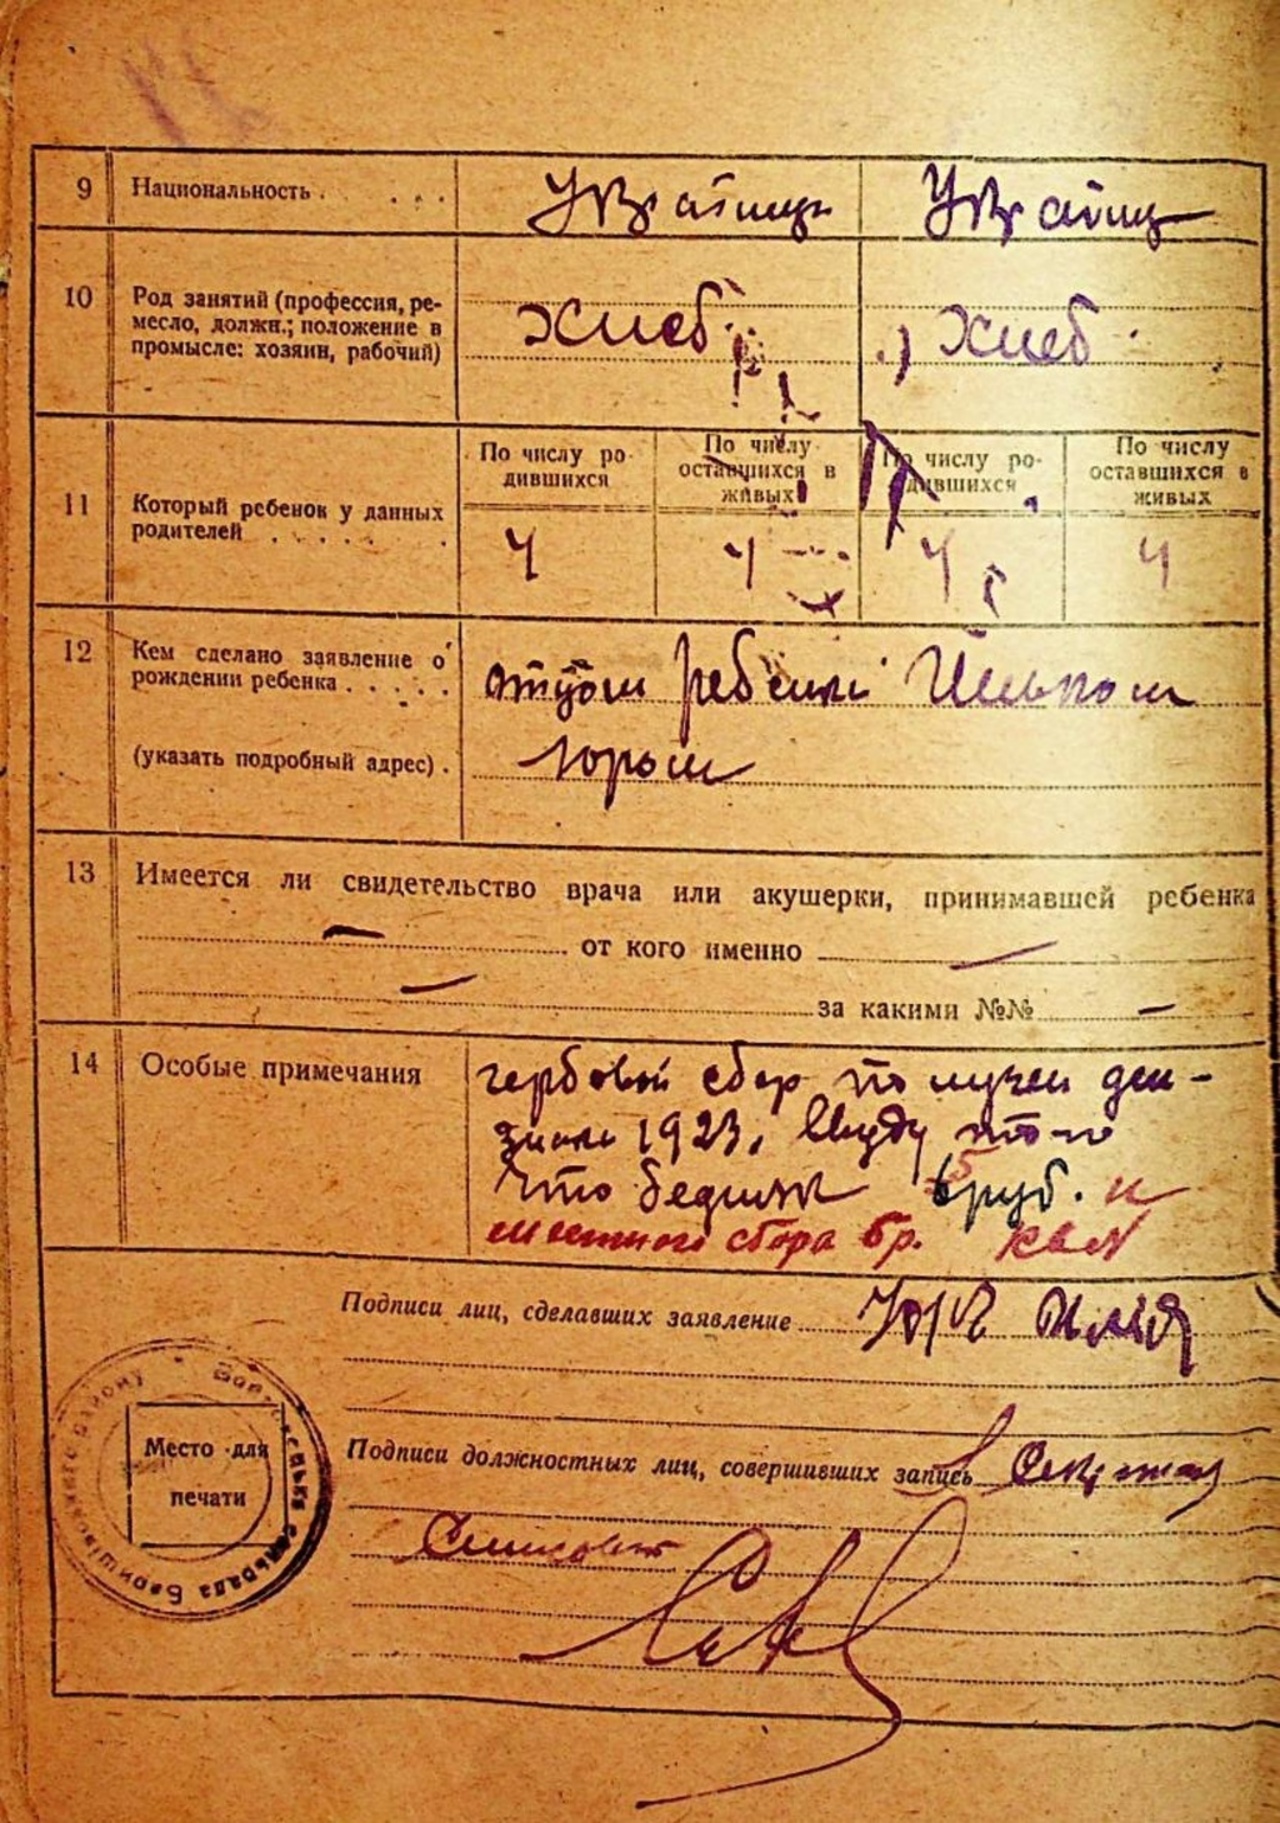 9 Национальность . . . . Украинц Украинц
10 Род занятий (профессия, ре-
месло, должн.; положение в
промысле: хозяин, рабочий)
Хлеб. Хлеб.
11 Который ребенок у данных
родителей . . . . . .
По числу ро-
дившихся
По числу
оставшихся в
живых
По числу ро-
дившихся
По числу
оставшихся в
живых
4 4 4 4
12 Кем сделано заявление о
рождении ребенка . . . . .
(указать подробный адрес) .
отцом ребенка Ильком
13 Имеется ли свидетельство врача или акушерки, принимавшей ребенка
— от кого именно —
— за какими №№ —
14 Особые примечания
гербовый сбор получен ден-
знак 1923, Ввиду того
что бедняк 5 руб. и
местного сбора 5р.
Подписи лиц, сделавших заявление Илия
Подписи должностных лиц, совершивших запись Секретарь
Место для
печати
сільска сельрада Баришівского району